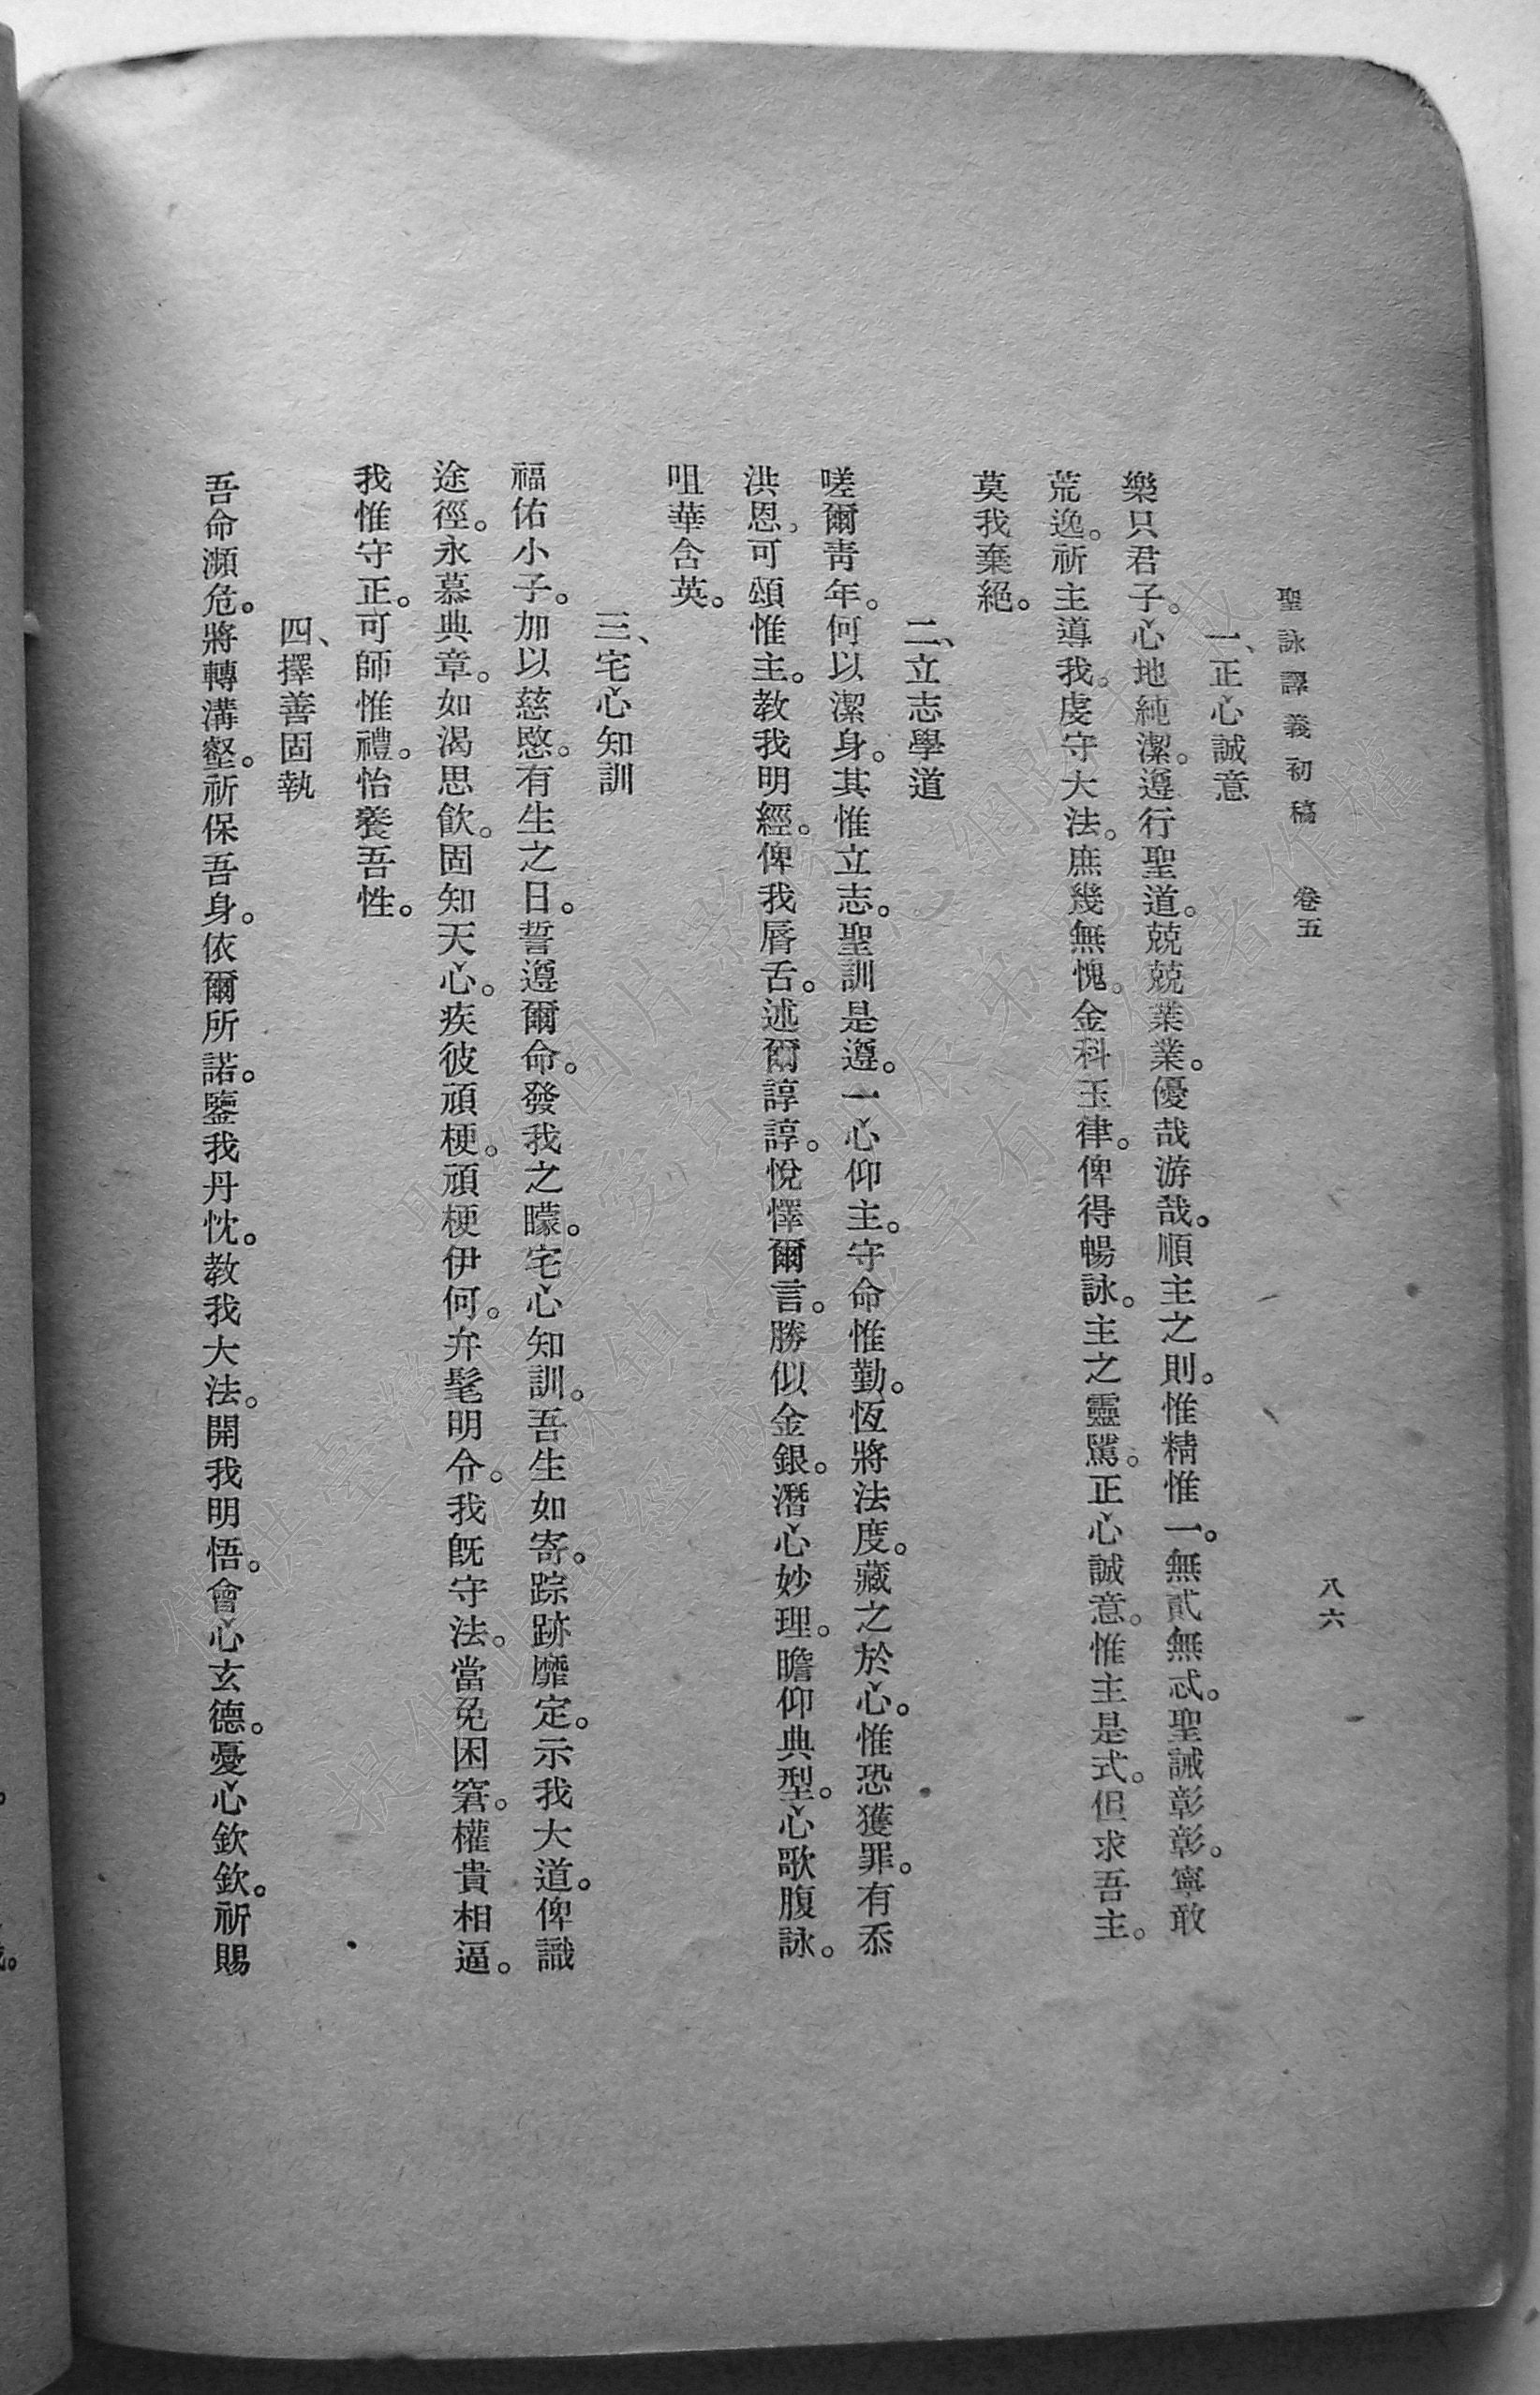 聖詠譯義初稿　卷五　八六
一、正心誠意
樂只君子。心地純潔。遵行聖道。兢兢業業。優哉游哉。順主之則。惟精惟一。無貳無忒。聖誡彰彰。寧敢
荒逸。祈主導我。虔守大法。庶幾無愧。金科玉律。俾得暢詠。主之靈騭。正心誠意。惟主是式。但求吾主。
莫我棄絕。
二、立志學道
嗟爾靑年。何以潔身。其惟立志。聖訓是遵。一心仰主。守命惟勤。恆將法度。藏之於心。惟恐獲罪。有忝
洪恩。可頌惟主。教我明經。俾我脣舌。述爾諄諄。悅懌爾言。勝似金銀。潛心妙理。瞻仰典型。心歌腹詠。
咀華含英。
三、宅心知訓
福佑小子。加以慈愍。有生之日。誓遵爾命。發我之矇。宅心知訓。吾生如寄。踪跡靡定。示我大道。俾識
途徑。永慕典章。如渴思飲。固知天心。疾彼頑梗。頑梗伊何。弁髦明令。我旣守法。當免困窘。權貴相逼。
我惟守正。可師惟禮。怡養吾性。
四、擇善固執
吾命瀕危。將轉溝壑。祈保吾身。依爾所諾。鑒我丹忱。教我大法。開我明悟。會心玄德。憂心欽欽。祈賜